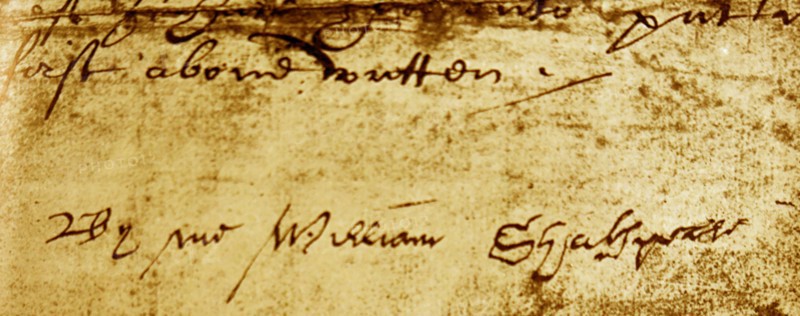 put
first aboue written
By me William Shakspeare